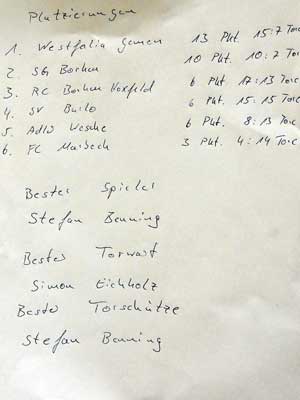 Platzierungen
1. Westfalia Gemen 13 Pkt. 15:7 Tore
2. SG Borken 10 Pkt. 10:7 Tore
3. RC Borken Hoxfeld 6 Pkt. 17:13 Tore
4. SV Burlo 6 Pkt. 15:15 Tore
5. Adler Weseke 6 Pkt. 8:13 Tore
6. FC Marbeck 3 Pkt. 4:14 Tore
Bester Spieler
Stefan Benning
Bester Torwart
Simon Eichholz
Bester Torschütze
Stefan Benning